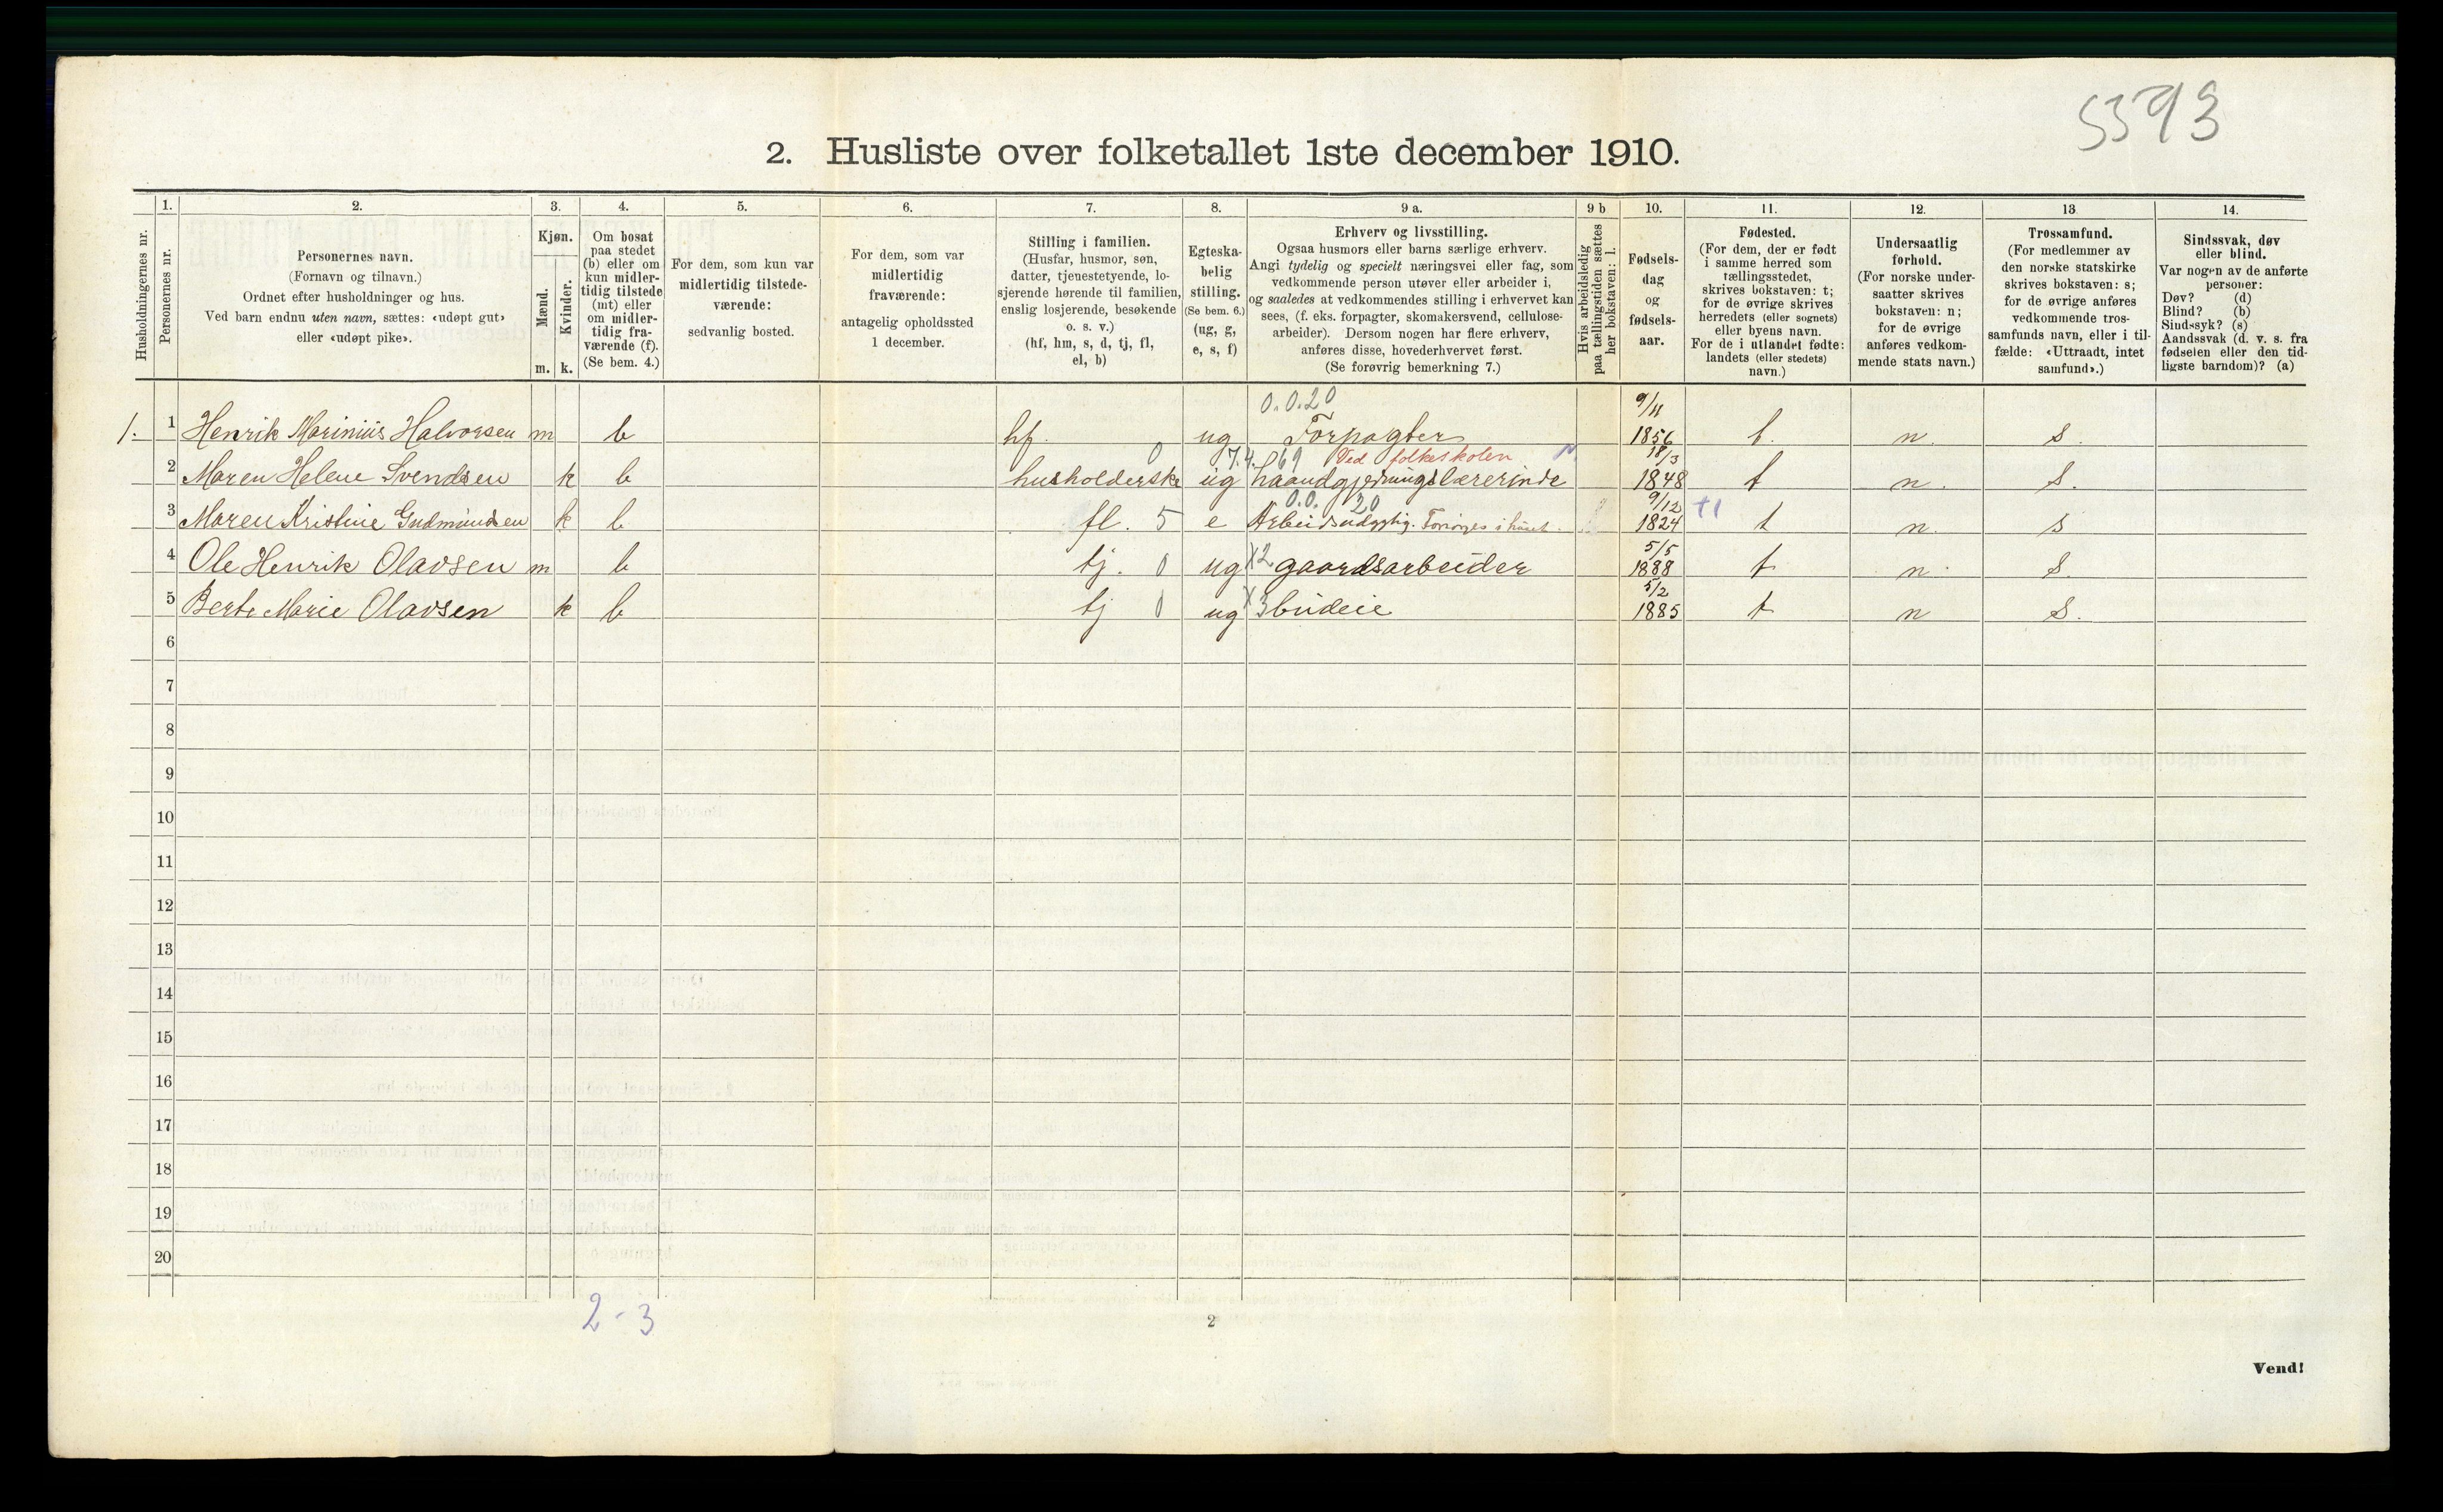 5393
2. Husliste over folketallet 1ste december 1910.
Husholdningernes nr.
1.
Personernes nr.
2.
Personernes navn.
(Fornavn og tilnavn.)
Ordnet efter husholdninger og hus.
Ved barn endnu uten navn, sættes: «udøpt gut»
eller «udøpt pike».
3.
Kjøn.
Mænd.
Kvinder.
m. k.
4.
Om bosat
paa stedet
(b) eller om
kun midler-
tidig tilstede
(mt) eller
om midler-
tidig fra-
værende (f).
(Se bem. 4.)
5.
For dem, som kun var
midlertidig tilstede-
værende:
sedvanlig bosted.
6.
For dem, som var
midlertidig
fraværende:
antagelig opholdssted
1 december.
7.
Stilling i familien.
(Husfar, husmor, søn,
datter, tjenestetyende, lo-
sjerende hørende til familien,
enslig losjerende, besøkende
o. s. v.)
(hf, hm, s, d, tj, fl,
el, b)
8.
Egteska-
belig
stilling.
(Se bem. 6.)
(ug, g,
e, s, f)
9 a.
Erhverv og livsstilling.
Ogsaa husmors eller barns særlige erhverv.
Angi tydelig og specielt næringsvei eller fag, som
vedkommende person utøver eller arbeider i,
og saaledes at vedkommendes stilling i erhvervet kan
sees, (f. eks. forpagter, skomakersvend, cellulose-
arbeider). Dersom nogen har flere erhverv,
anføres disse, hovederhvervet først.
(Se forøvrig bemerkning 7.)
9 b
Hvis arbeidsledig
paa tællingstiden sættes
her bokstaven: l.
10.
Fødsels-
dag
og
fødsels-
aar.
11.
Fødested.
(For dem, der er født
i samme herred som
tællingsstedet,
skrives bokstaven: t;
for de øvrige skrives
herredets (eller sognets)
eller byens navn.
For de i utlandet fødte:
landets (eller stedets)
navn.)
12.
Undersaatlig
forhold.
(For norske under-
saatter skrives
bokstaven: n;
for de øvrige
anføres vedkom-
mende stats navn.)
13
Trossamfund.
(For medlemmer av
den norske statskirke
skrives bokstaven: s;
for de øvrige anføres
vedkommende tros-
samfunds navn, eller i til-
fælde: «Uttraadt, intet
samfund».)
14.
Sindssvak, døv
eller blind.
Var nogen av de anførte
personer:
Døv? (d)
Blind? (b)
Sindssyk? (s)
Aandssvak (d. v. s. fra
fødselen eller den tid-
ligste barndom)? (a)
0.0.20 9/11
1. 1 Henrik Marinius Halvorsen m b hf. ug Forpagter 1856 t. n. s.
0 7.4.069 Ved folkeskolen 18/3
2 Maren Helene Svendsen k b husholderske ug haandgjerningslærerinde 1848 t n. s.
0.0.20 9/12
3 Maren Kristine Gudmundsen k b fl. 5 e Arbeidsudygtig. Forsørges i huset. 1824 t n. s
5/5
4 Ole Henrik Olavsen m b tj. 0 ug X2 gaardsarbeider 1888 t n. s.
5/2
5 Berte Marie Olavsen k b tj 0 ug X3 budeie 1885 t n s.
6
7
8
9
10
11
12
13
14
15
16
17
18
19
20
2-3
2
Vend!